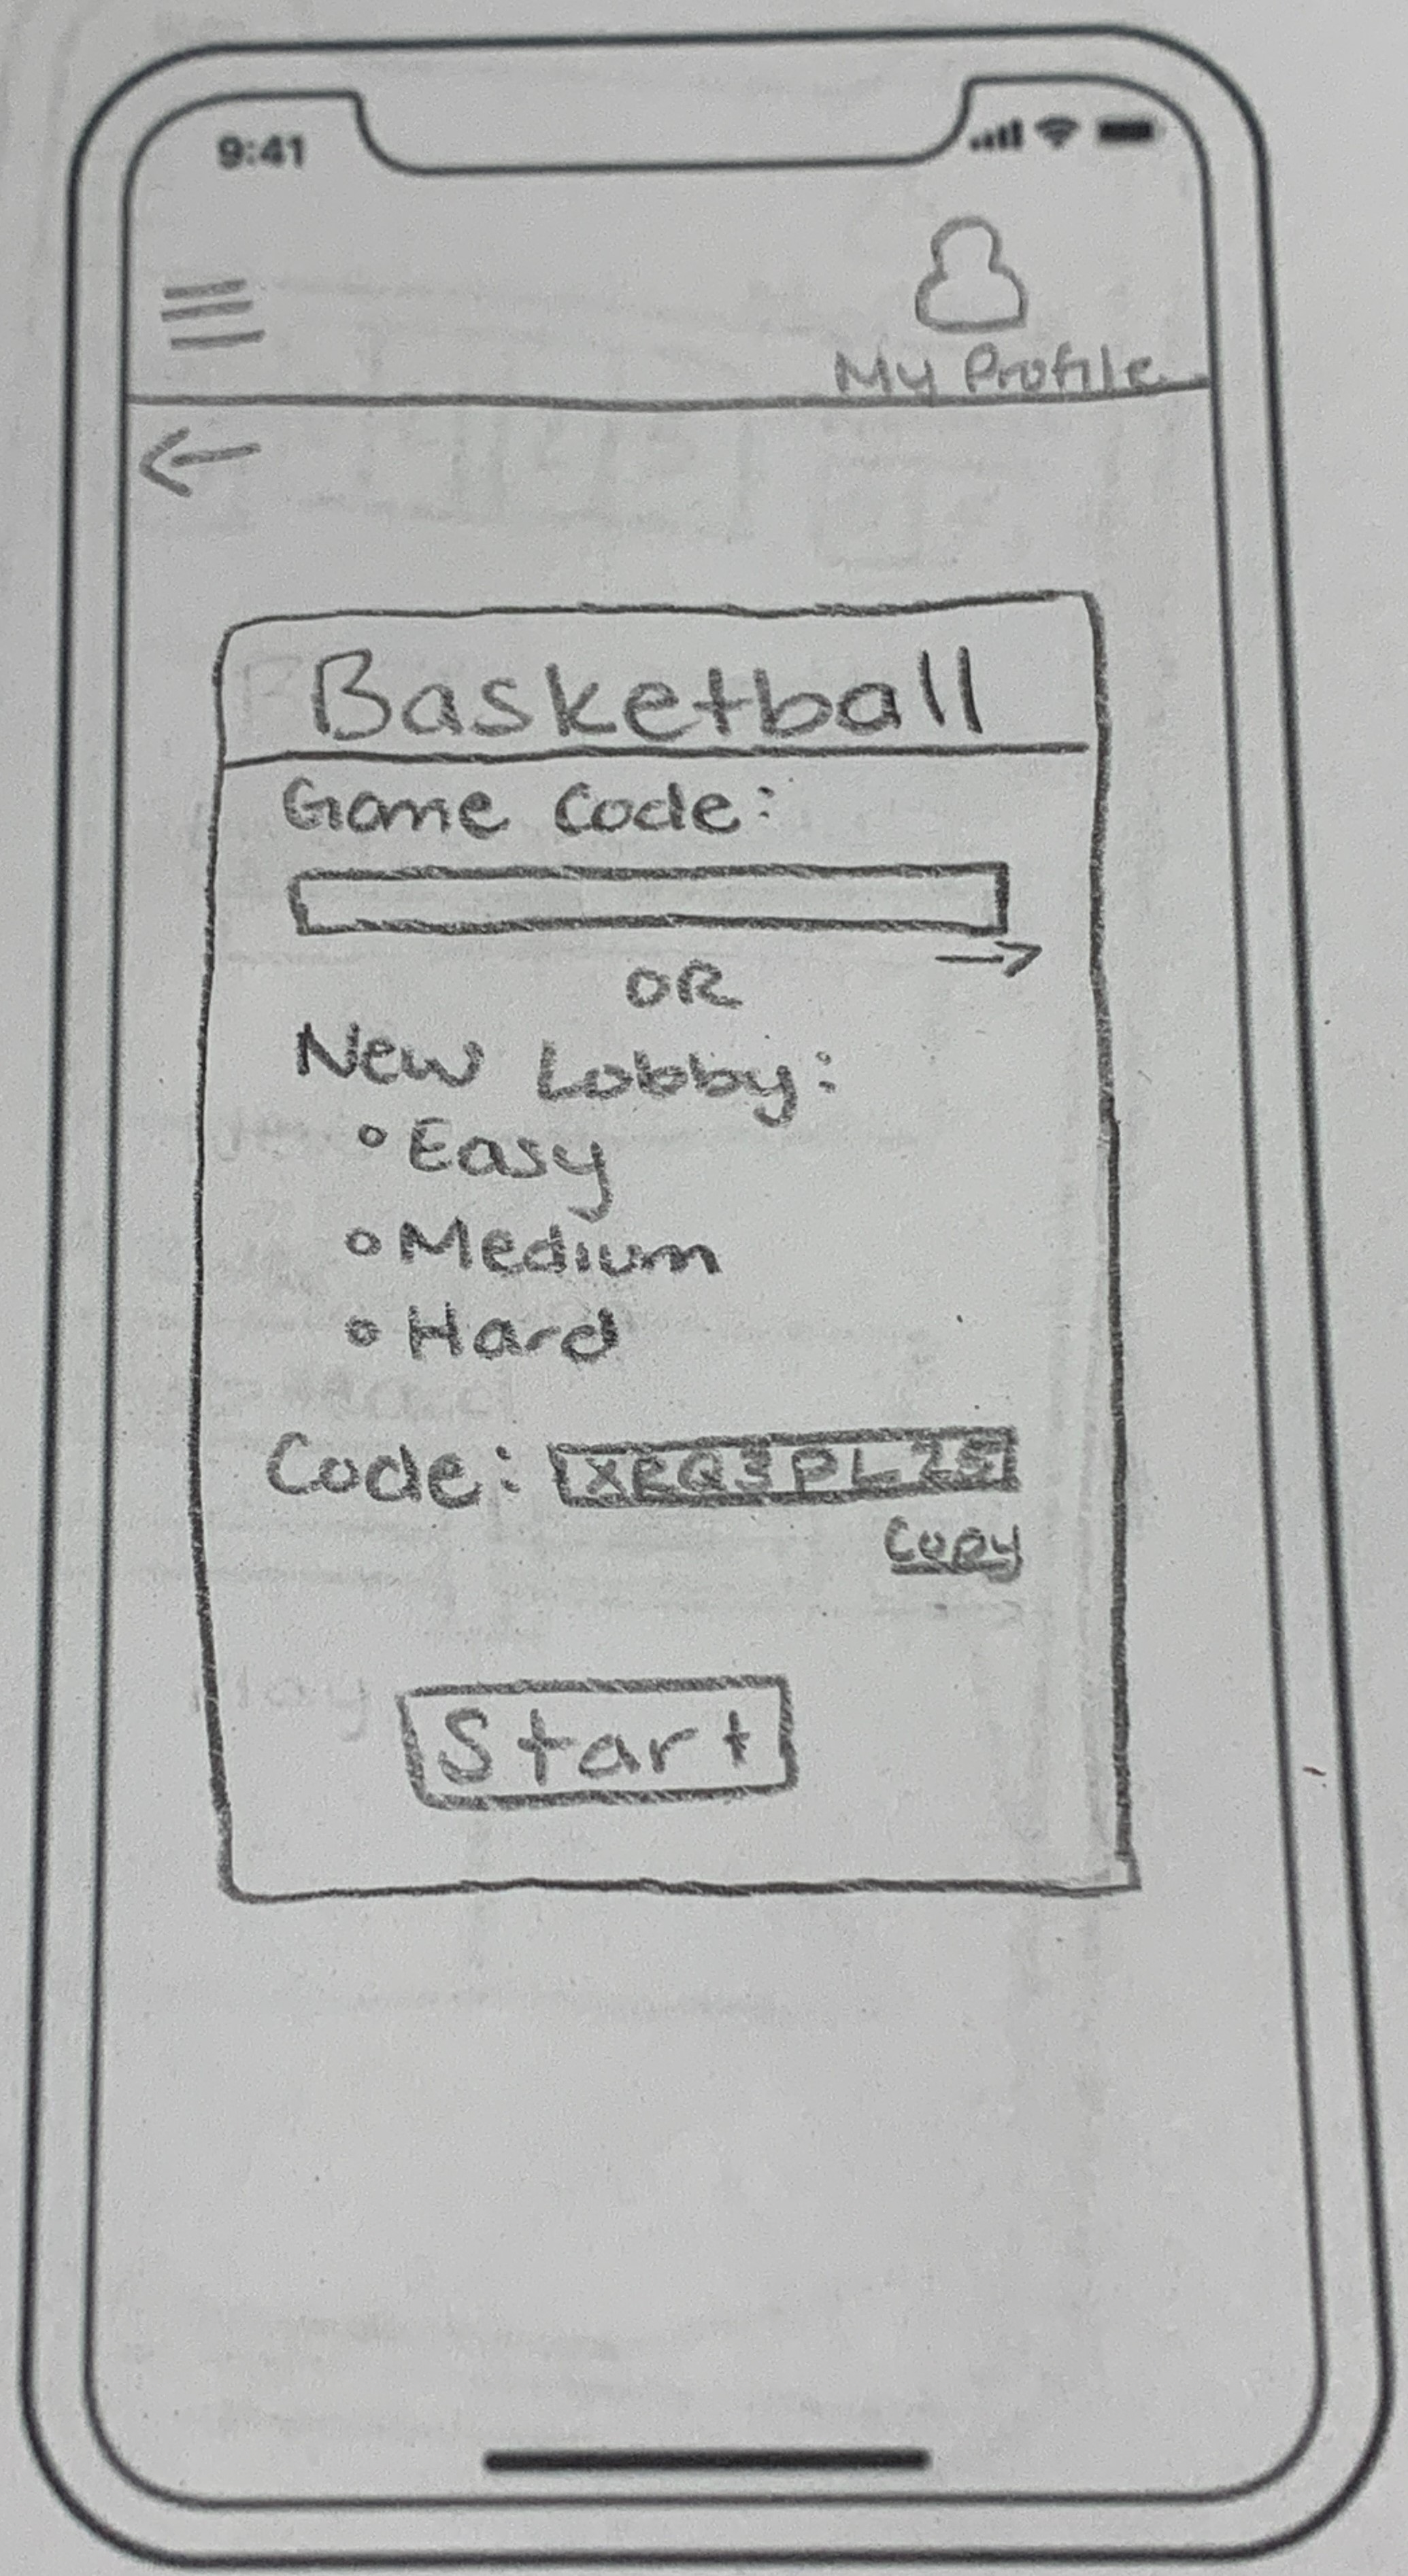 9:41
My Profile
Basketball
Game Code:
OR
New Lobby:
Easy
Medium
Hard
Code:
Copy
Start